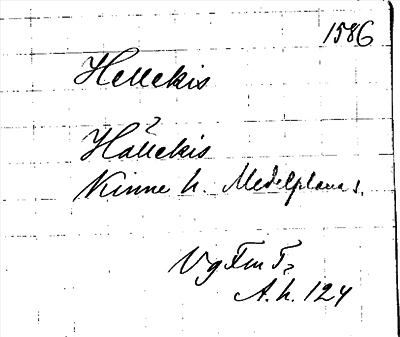 1586
Hellekis
?
Hällekis
Kinne h. Medelplana s.
Vg Fm T2
A.h. 124